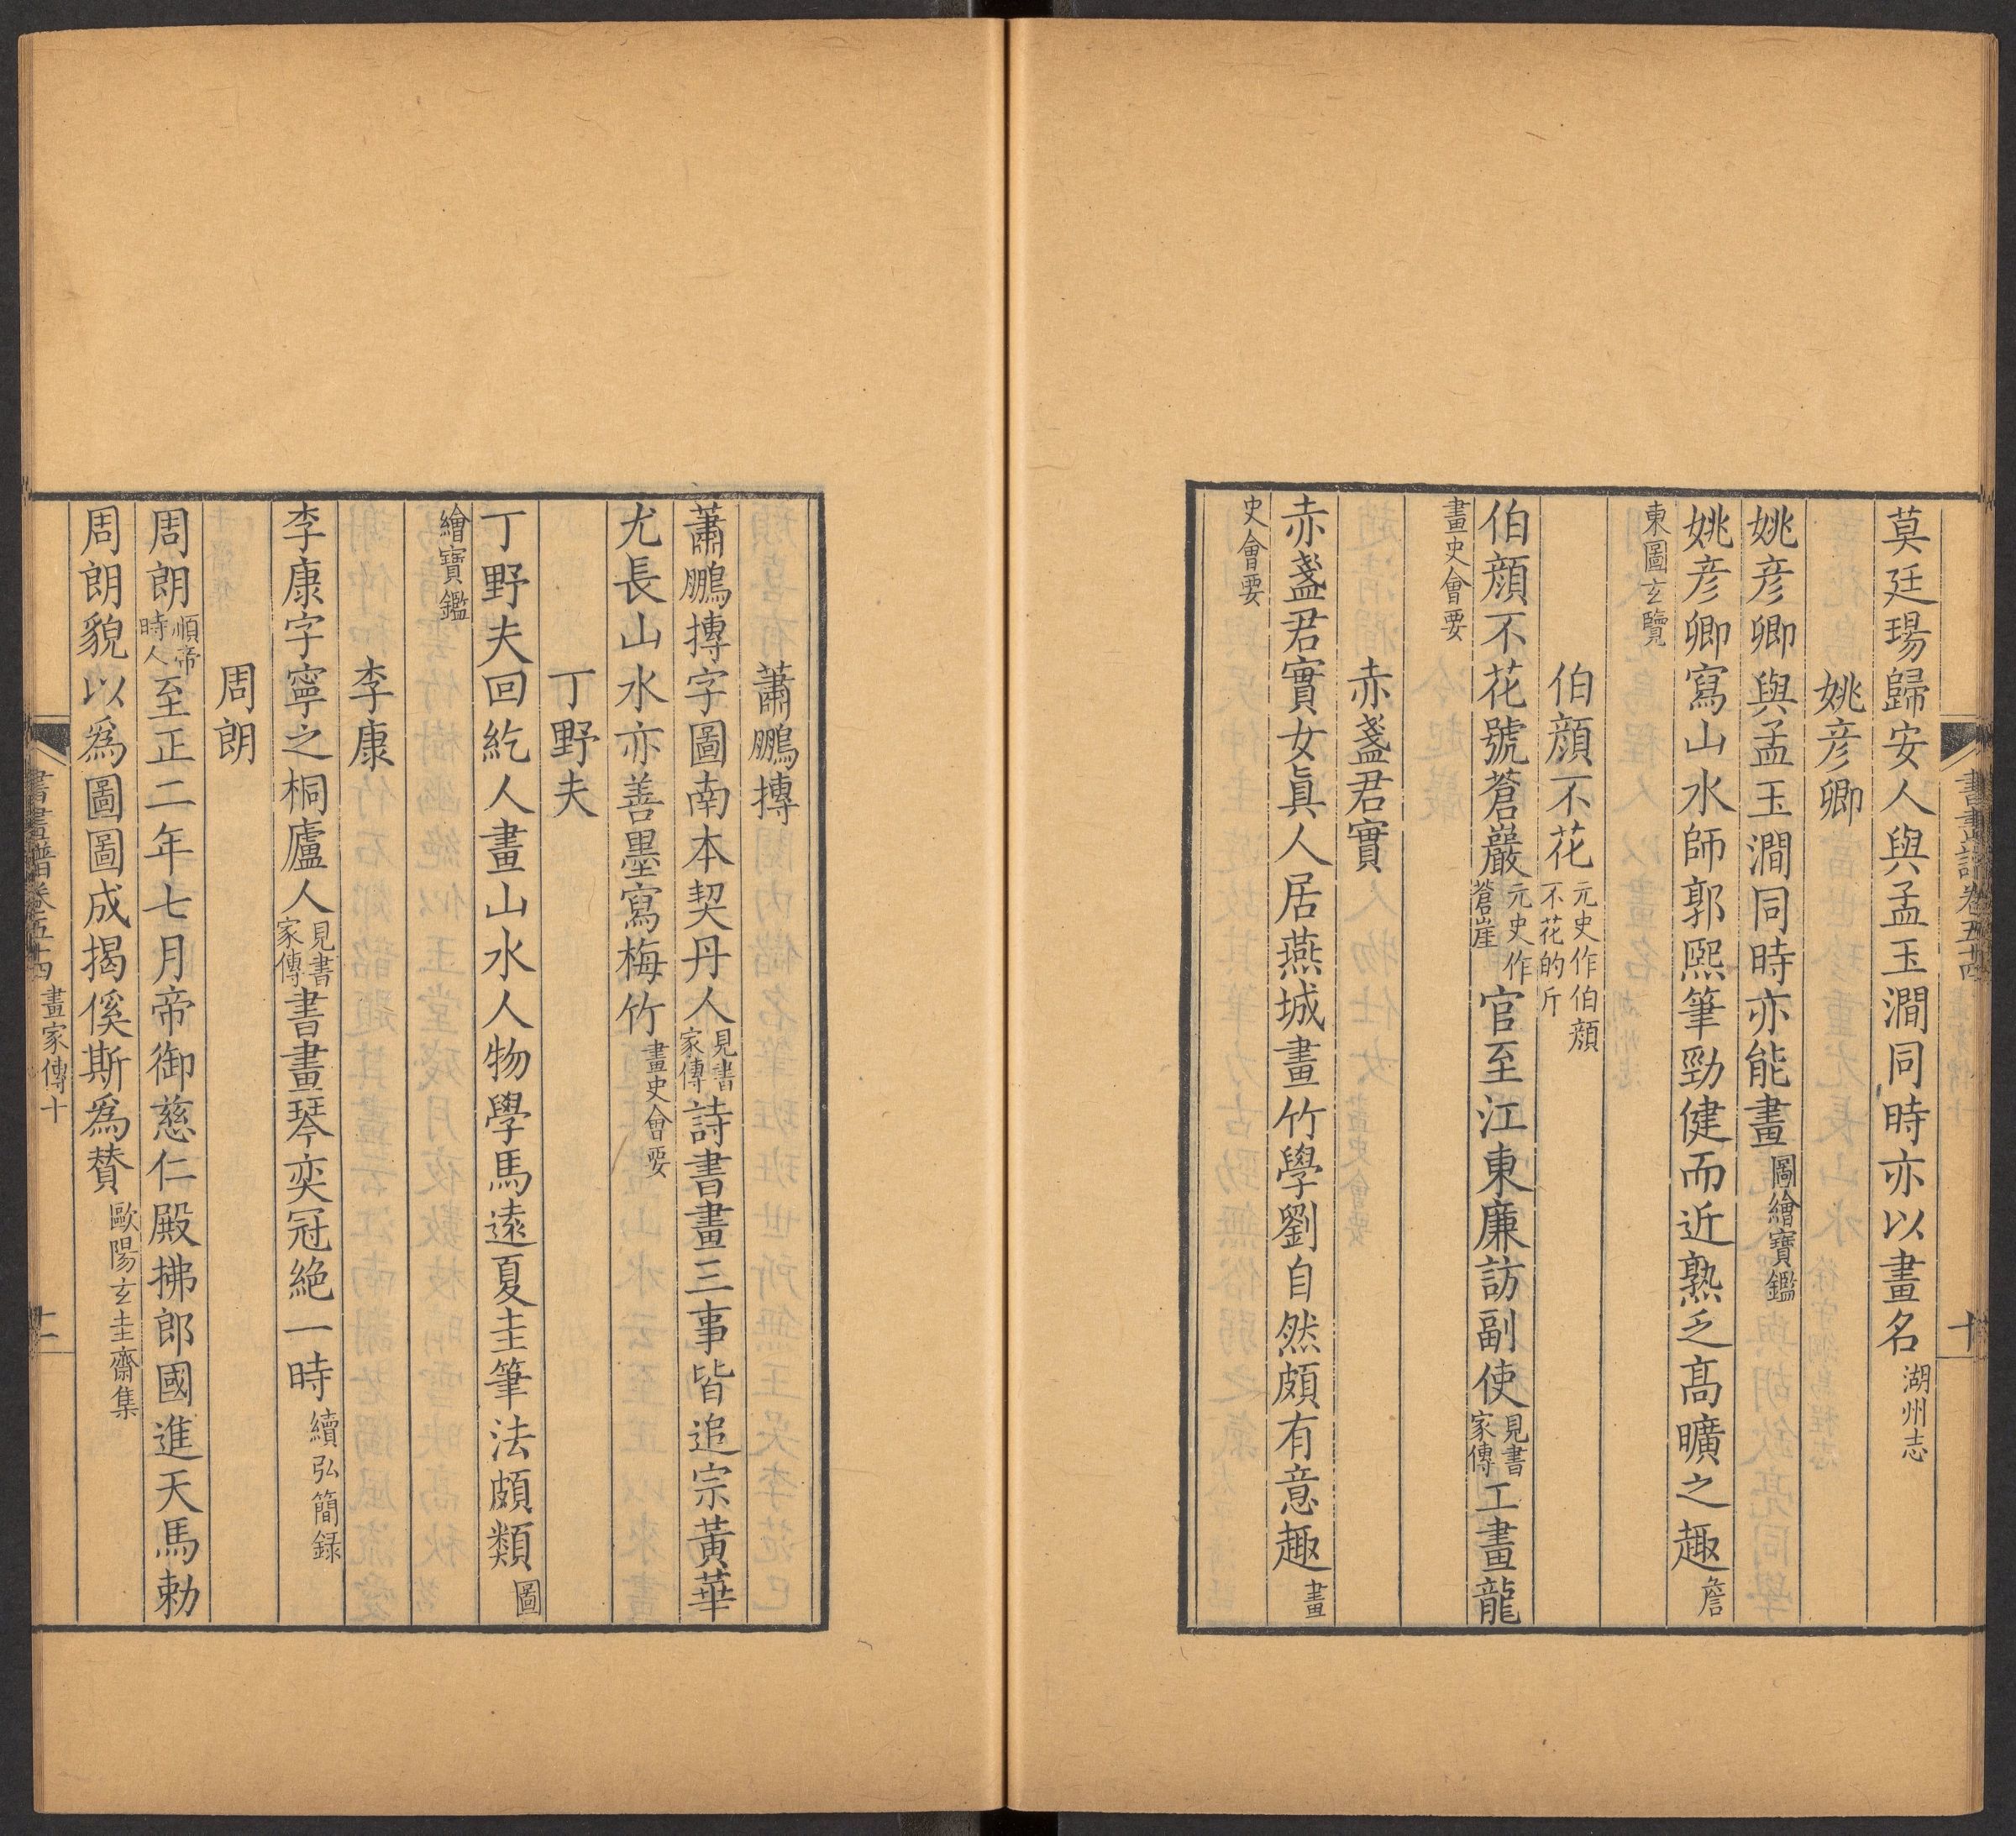 書畫譜卷五十四
十
莫廷瑒歸安人與孟玉澗同時亦以畫名湖州志
姚彥卿
姚彥卿與孟玉澗同時亦能畫圖繪寶鑑
姚彥卿寫山水師郭熙筆勁健而近熟乏高曠之趣詹
東圖玄覽
伯顏不花元史作伯顏不花的斤
伯顏不花號蒼巖元史作蒼崖官至江東廉訪副使見書家傳工畫龍
畫史會要
赤盞君實
赤盞君實女眞人居燕城畫竹學劉自然頗有意趣畫
史會要
蕭鵬摶
蕭鵬摶字圖南本契丹人見書家傳詩書畫三事皆追宗黃華
尤長山水亦善墨寫梅竹畫史會要
丁野夫
丁野夫回紇人畫山水人物學馬遠夏圭筆法頗類圖
繪寶鑑
李康
李康字寧之桐廬人見書家傳書畫琴奕冠絶一時續弘簡録
周朗
周朗順帝時人至正二年七月帝御慈仁殿拂郎國進天馬勅
周朗貌以爲圖圖成揭傒斯爲賛歐陽玄圭齋集
書畫譜卷五十四 畫家傳十
十一